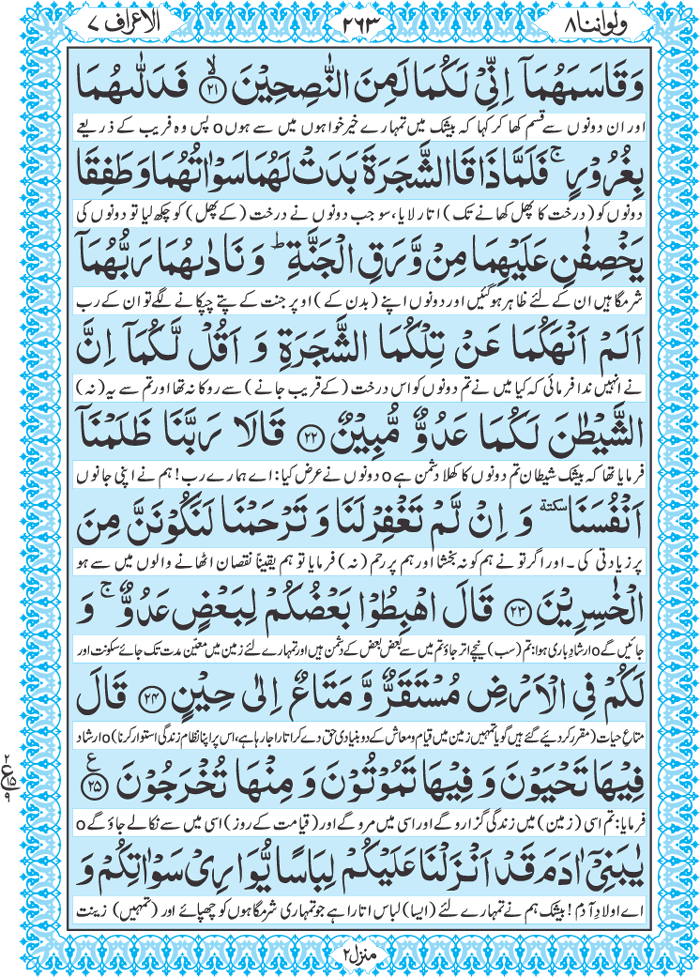 ولواننا ٨ ٢٦٣ الاعراف ٧
وَقَاسَمَهُمَاۤ اِنِّیْ لَكُمَا لَمِنَ النّٰصِحِیْنَ ﴿ۙ۲۱﴾ فَدَلّٰىهُمَا
اور ان دونوں سے قسم کھا کر کہا کہ بیشک میں تمہارے خیرخواہوں میں سے ہوںo پس وہ فریب کے ذریعے
بِغُرُوْرٍ ۚ فَلَمَّا ذَاقَا الشَّجَرَةَ بَدَتْ لَهُمَا سَوْاٰتُهُمَا وَ طَفِقَا
دونوں کو (درخت کا پھل کھانے تک) اتار لایا، سو جب دونوں نے درخت (کے پھل) کو چکھ لیا تو دونوں کی
یَخْصِفٰنِ عَلَیْهِمَا مِنْ وَّرَقِ الْجَنَّةِ ؕ وَ نَادٰىهُمَا رَبُّهُمَاۤ
شرمگاہیں ان کے لئے ظاہر ہوگئیں اور دونوں اپنے (بدن کے) اوپر جنت کے پتے چپکانے لگے تو ان کے رب
اَلَمْ اَنْهَكُمَا عَنْ تِلْكُمَا الشَّجَرَةِ وَ اَقُلْ لَّكُمَاۤ اِنَّ
نے انہیں ندا فرمائی کہ کیا میں نے تم دونوں کو اس درخت (کے قریب جانے) سے روکا نہ تھا اور تم سے یہ (نہ)
الشَّیْطٰنَ لَكُمَا عَدُوٌّ مُّبِیْنٌ ﴿۲۲﴾ قَالَا رَبَّنَا ظَلَمْنَاۤ
فرمایا تھا کہ بیشک شیطان تم دونوں کا کھلا دشمن ہےo دونوں نے عرض کیا: اے ہمارے رب! ہم نے اپنی جانوں
اَنْفُسَنَا ٚ سكتة وَ اِنْ لَّمْ تَغْفِرْ لَنَا وَ تَرْحَمْنَا لَنَكُوْنَنَّ مِنَ
پر زیادتی کی۔ اور اگر تو نے ہم کو نہ بخشا اور ہم پر رحم (نہ) فرمایا تو ہم یقیناً نقصان اٹھانے والوں میں سے ہو
الْخٰسِرِیْنَ ﴿۲۳﴾ قَالَ اهْبِطُوْا بَعْضُكُمْ لِبَعْضٍ عَدُوٌّ ۚ وَ
جائیں گےo ارشادِ باری ہوا: تم (سب) نیچے اتر جاؤ تم میں سے بعض بعض کے دشمن ہیں اور تمہارے لئے زمین میں معیّن مدت تک جائے سکونت اور
لَكُمْ فِی الْاَرْضِ مُسْتَقَرٌّ وَّ مَتَاعٌ اِلٰی حِیْنٍ ﴿۲۴﴾ قَالَ
متاعِ حیات (مقرر کر دیئے گئے ہیں گویا تمہیں زمین میں قیام و معاش کے دو بنیادی حق دے کر اتارا جا رہا ہے، اس پر اپنا نظامِ زندگی استوار کرنا)o ارشاد
فِیْهَا تَحْیَوْنَ وَ فِیْهَا تَمُوْتُوْنَ وَ مِنْهَا تُخْرَجُوْنَ ﴿۲۵﴾ ع
فرمایا: تم اسی (زمین) میں زندگی گزارو گے اور اسی میں مرو گے اور (قیامت کے روز) اسی میں سے نکالے جاؤ گےo
یٰبَنِیْۤ اٰدَمَ قَدْ اَنْزَلْنَا عَلَیْكُمْ لِبَاسًا یُّوَارِیْ سَوْاٰتِكُمْ وَ
اے اولادِ آدم! بیشک ہم نے تمہارے لئے (ایسا) لباس اتارا ہے جو تمہاری شرمگاہوں کو چھپائے اور (تمہیں) زینت
منزل ٢